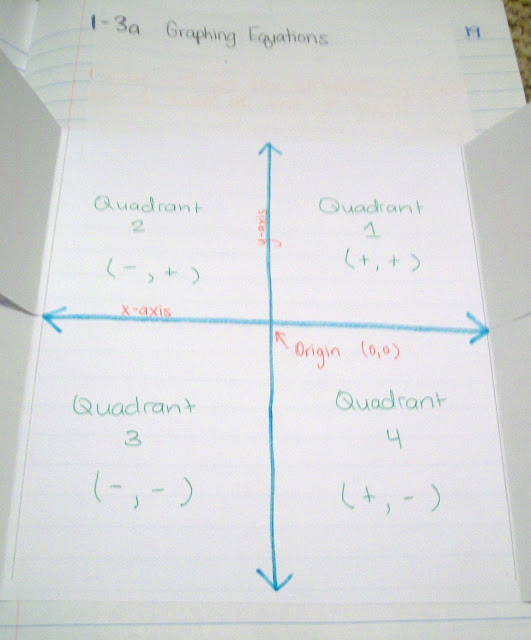 1-3a Graphing Equations
19
Quadrant
2
(-,+)
y-axis
Quadrant
1
(+,+)
x-axis
Origin (0,0)
Quadrant
3
(-,-)
Quadrant
4
(+,-)